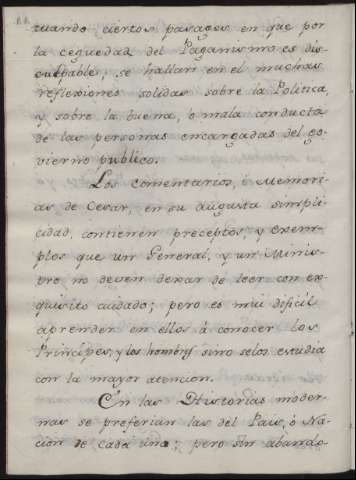 tuando ciertos pasages en que por
la ceguedad del Paganismo es dis-
culpable, se hallan en el muchas
reflexiones solidas sobre la Politica,
y sobre la buena, ó mala conducta
de las personas encargadas del go-
vierno publico.
Los comentarios, ó Memori-
as de Cesar, en su augusta simpli-
cidad, contienen preceptos, y exem-
plos que un General, y un Minis-
tro no deven dexar de leer con ex-
quisito cuidado; pero es mui dificil
aprender en ellos á conocer los
Principes, y los hombres sino se los estudia
con la mayor atencion.
En las Historias moder-
nas se preferian las del Pais, ó Na-
cion de cada uno; pero sin abando-